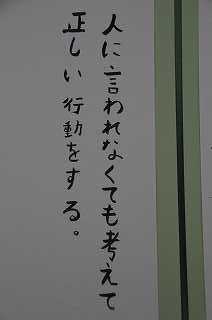 人に言われなくても考えて
正しい行動をする。